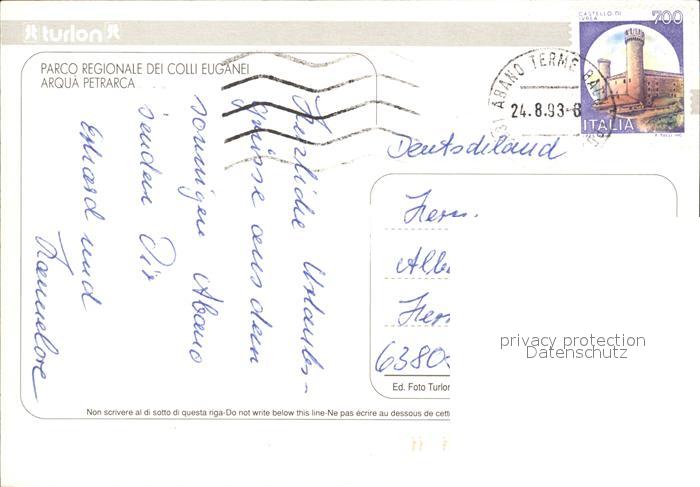 turlon
CASTELLO DI
IVREA
700
ITALIA
ABANO TERME
24.8.93-
PARCO REGIONALE DEI COLLI EUGANEI
ARQUÀ PETRARCA
Herzliche Urlaubs-
grüsse aus dem
sonnigen Abano
senden Dir
Erhard und
Hannelore
Deutschland
Herrn
Alb
Her
6380
Ed. Foto Turlon
privacy protection
Datenschutz
Non scrivere al di sotto di questa riga-Do not write below this line-Ne pas écrire au dessous de cette